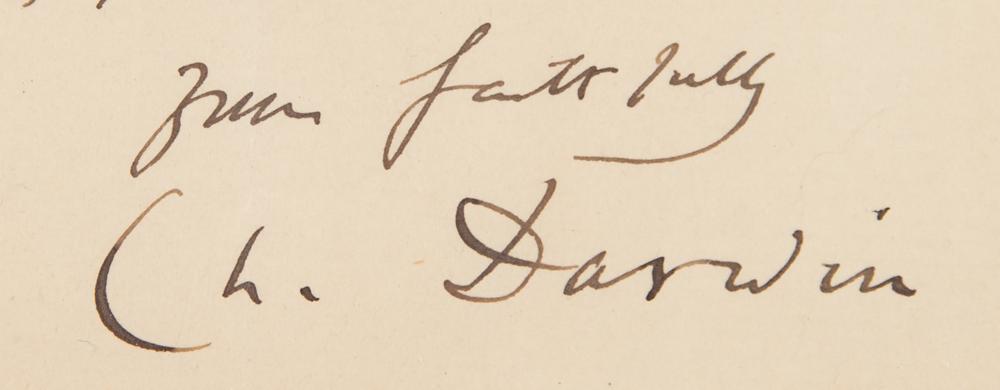 Yours faithfully
Ch. Darwin